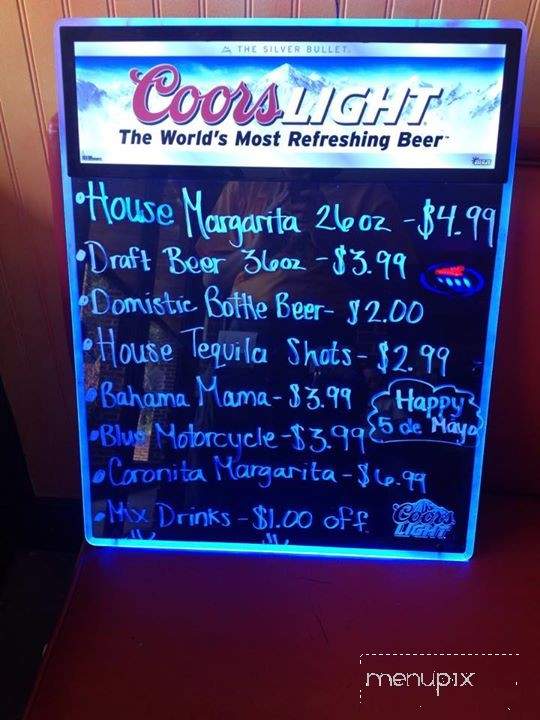 THE SILVER BULLET.
Coors LIGHT
The World's Most Refreshing Beer
•House Margarita 26oz -$4.99
•Draft Beer 36oz -$3.99
•Domistic Bottle Beer- $2.00
•House Tequila Shots- $2.99
•Bahama Mama- $3.99
Happy
5 de Mayo
•Blue Motorcycle-$3.99
•Coronita Margarita-$6.99
•Mix Drinks -$1.00 off
Coors
LIGHT
menupix